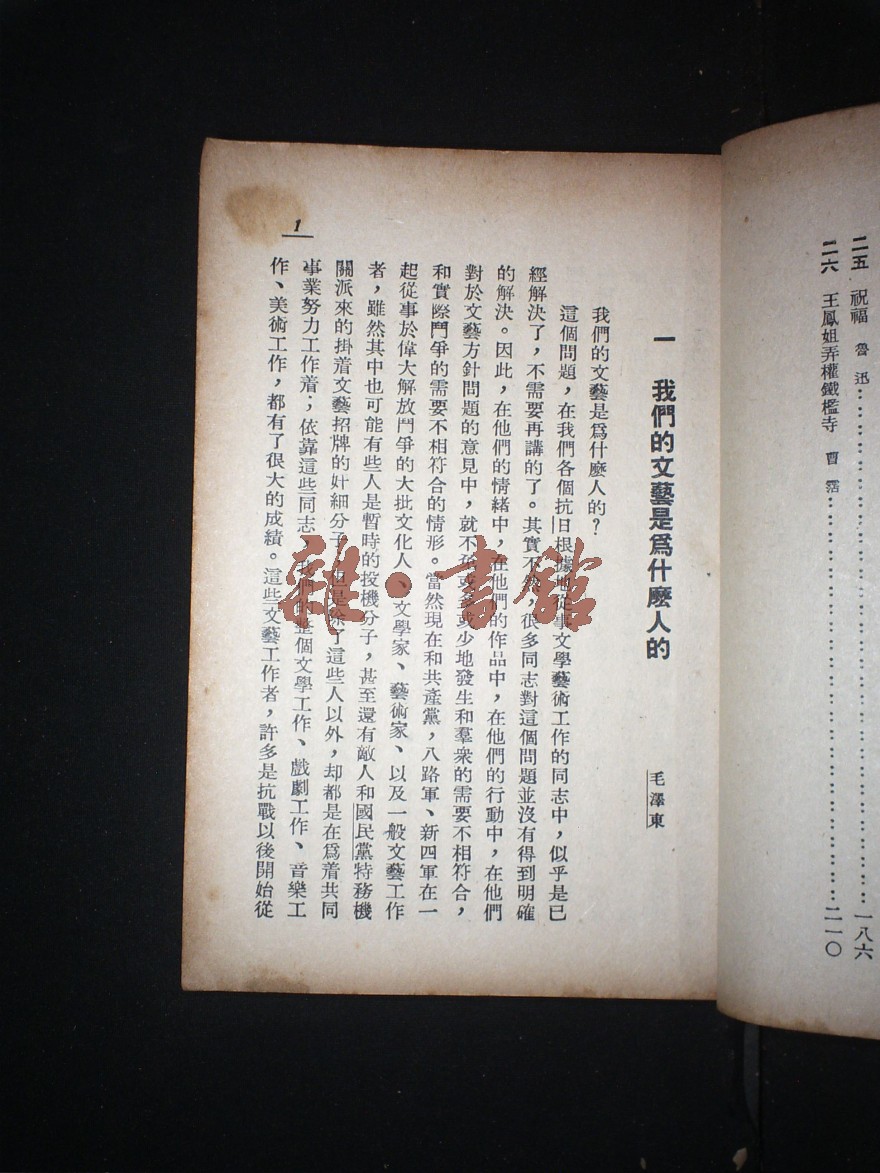 二五　祝福　魯迅……………………一八六
二六　王鳳姐弄權鐵檻寺　曹霑……………………二一〇
一　我們的文藝是爲什麽人的
毛澤東
我們的文藝是爲什麽人的？
這個問題，在我們各個抗日根據地從事文學藝術工作的同志中，似乎是已
經解決了，不需要再講的了。其實不然，很多同志對這個問題並沒有得到明確
的解決。因此，在他們的情緒中，在他們的作品中，在他們的行動中，在他們
對於文藝方針問題的意見中，就不免或多或少地發生和羣衆的需要不相符合，
和實際鬥爭的需要不相符合的情形。當然現在和共產黨，八路軍、新四軍在一
起從事於偉大解放鬥爭的大批文化人、文學家、藝術家、以及一般文藝工作
者，雖然其中也可能有些人是暫時的投機分子，甚至還有敵人和國民黨特務機
關派來的掛着文藝招牌的奸細分子，但是除了這些人以外，却都是在爲着共同
事業努力工作着；依靠這些同志，我們的整個文學工作、戲劇工作、音樂工
作、美術工作，都有了很大的成績。這些文藝工作者，許多是抗戰以後開始從
1
雜·書館